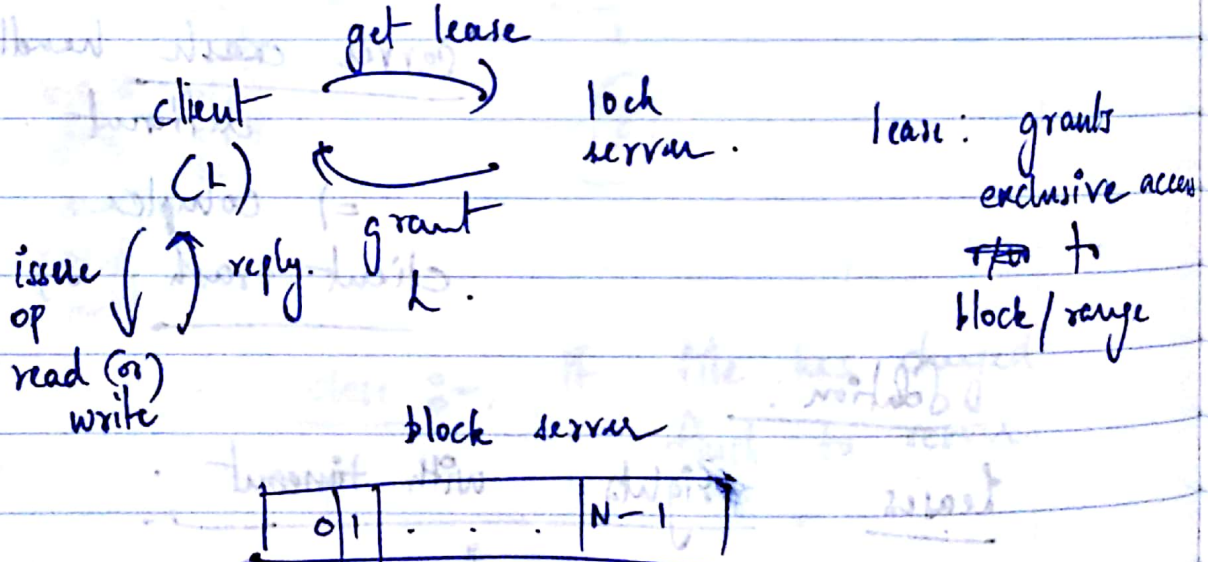 get lease
client
(L)
lock
server.
grant
L.
lease: grants
exclusive access
to
block/range
issue
op
read (or)
write
reply.
block server
0 1 . . . N-1